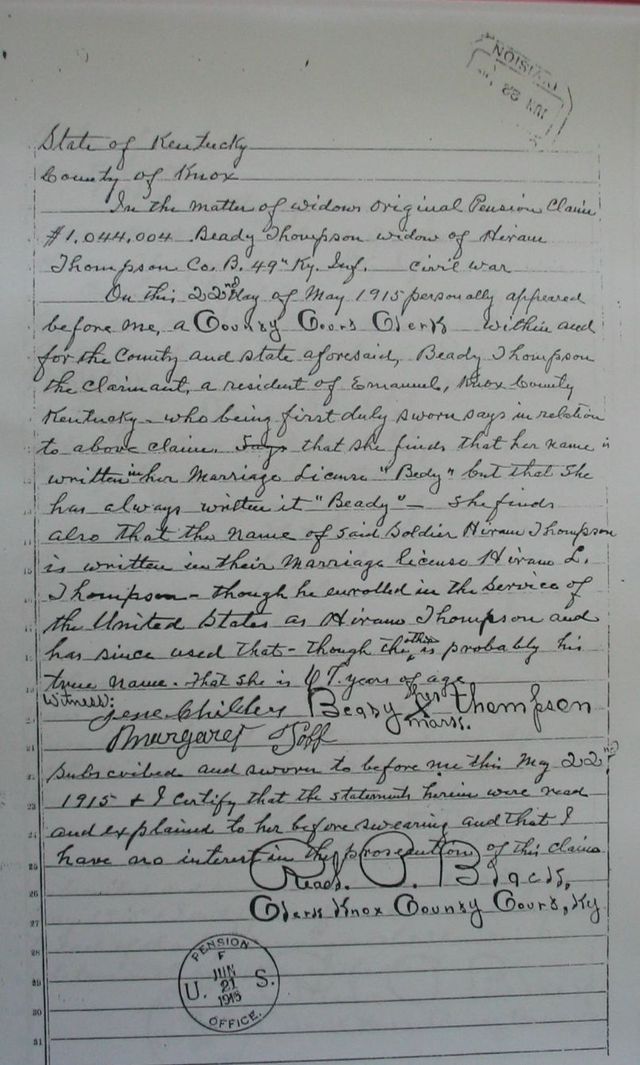 DIVISION
JUN 22
State of Kentucky
County of Knox
In the matter of widows Original Pension Claim
#1,044,004 Beady Thompson widow of Hiram
Thompson Co. B. 49" Ky. Inf. civil war
On this 22nd day of May 1915 personally appeared
before me, a County Court Clerk within and
for the County and state aforesaid, Beady Thompson
the claimant, a resident of Emanuel, Knox County
Kentucky - who being first duly sworn says in relation
to above claim. Says that she finds that her name is
written in her Marriage License "Bedy" but that she
has always written it "Beady" - she finds
also that the name of said soldier Hiram Thompson
is written in their marriage license Hiram L.
Thompson - though he enrolled in the service of
the United States as Hiram Thompson and
has since used that - though the other is probably his
true name. That she is 67. years of age
Witness: Beady her x mark. Thompson
Jese Childers
Margaret Goff
subscribed and sworn to before me this May 22nd
1915 & I certify that the statements herein were read
and explained to her before swearing and that I
have no interest in the prosecution of this claim
Read. P. Black,
Clerk Knox County Court, Ky
PENSION
F
JUN
U. 21 S.
1915
OFFICE.
21
22
23
24
25
26
27
28
29
30
31